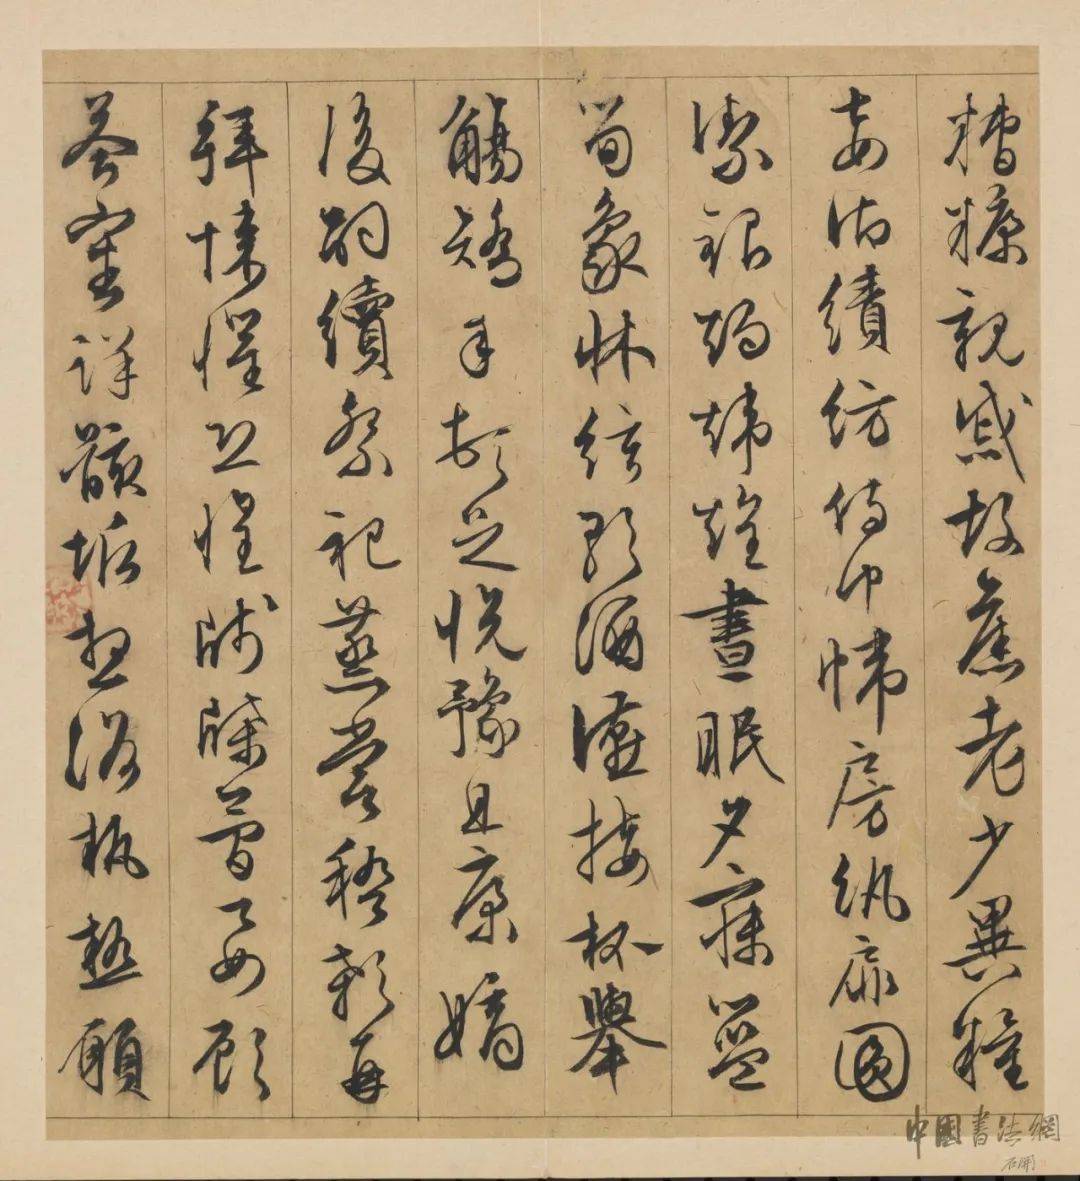 糟糠親戚故舊老少異糧
妾御績紡侍巾帷房紈扇圓
潔銀燭煒煌晝眠夕寐藍
筍象牀絃歌酒讌接杯舉
觴矯手頓足悅豫且康嫡
後嗣續祭祀蒸嘗稽顙再
拜悚懼恐惶牋牒簡要顧
答審詳骸垢想浴執熱願
中國書法網
石開